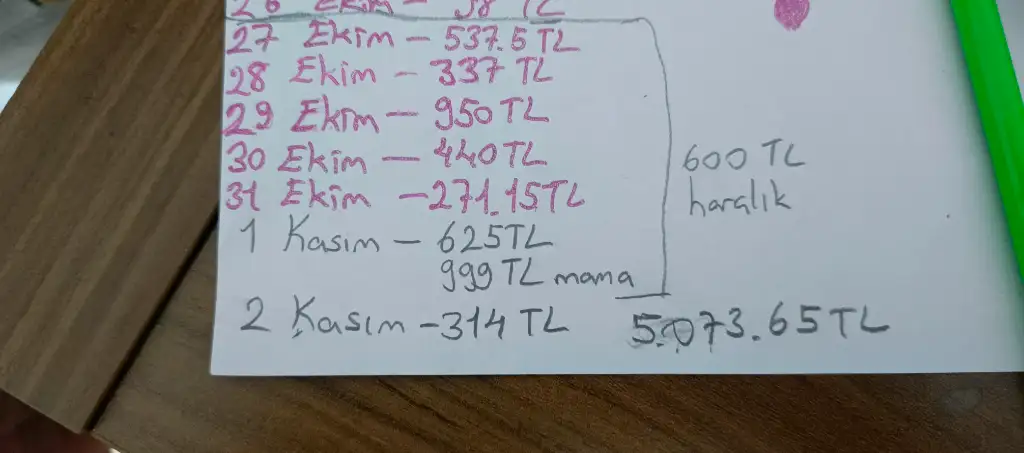 26 Ekim - 98 TL
27 Ekim - 537.5 TL
28 Ekim - 337 TL
29 Ekim - 950 TL
30 Ekim - 440 TL
31 Ekim - 271.15 TL
1 Kasım - 625 TL
999 TL mama
600 TL
harçlık
2 Kasım - 314 TL
5.073.65 TL